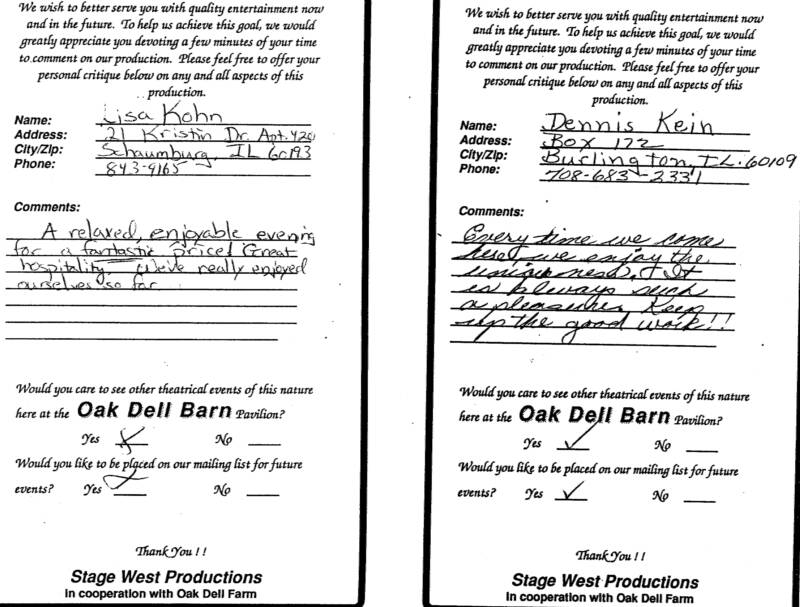 We wish to better serve you with quality entertainment now
and in the future. To help us achieve this goal, we would
greatly appreciate you devoting a few minutes of your time
to comment on our production. Please feel free to offer your
personal critique below on any and all aspects of this
production.
Name: Lisa Kohn
Address: 21 Kristin Dr. Apt. 420
City/Zip: Schaumburg, IL 60193
Phone: 843-9165
Comments:
A relaxed, enjoyable evening
for a fantastic price! Great
hospitality. We've really enjoyed
ourselves so far
Would you care to see other theatrical events of this nature
here at the Oak Dell Barn Pavilion?
Yes No
Would you like to be placed on our mailing list for future
events? Yes No
Thank You ! !
Stage West Productions
In cooperation with Oak Dell Farm
We wish to better serve you with quality entertainment now
and in the future. To help us achieve this goal, we would
greatly appreciate you devoting a few minutes of your time
to comment on our production. Please feel free to offer your
personal critique below on any and all aspects of this
production.
Name: Dennis Kein
Address: Box 172
City/Zip: Burlington, IL. 60109
Phone: 708-683-2331
Comments:
Every time we come
here we enjoy the
uniqueness. It
is always such
a pleasure. Keep
up the good work!!
Would you care to see other theatrical events of this nature
here at the Oak Dell Barn Pavilion?
Yes ✓ No
Would you like to be placed on our mailing list for future
events? Yes ✓ No
Thank You ! !
Stage West Productions
In cooperation with Oak Dell Farm